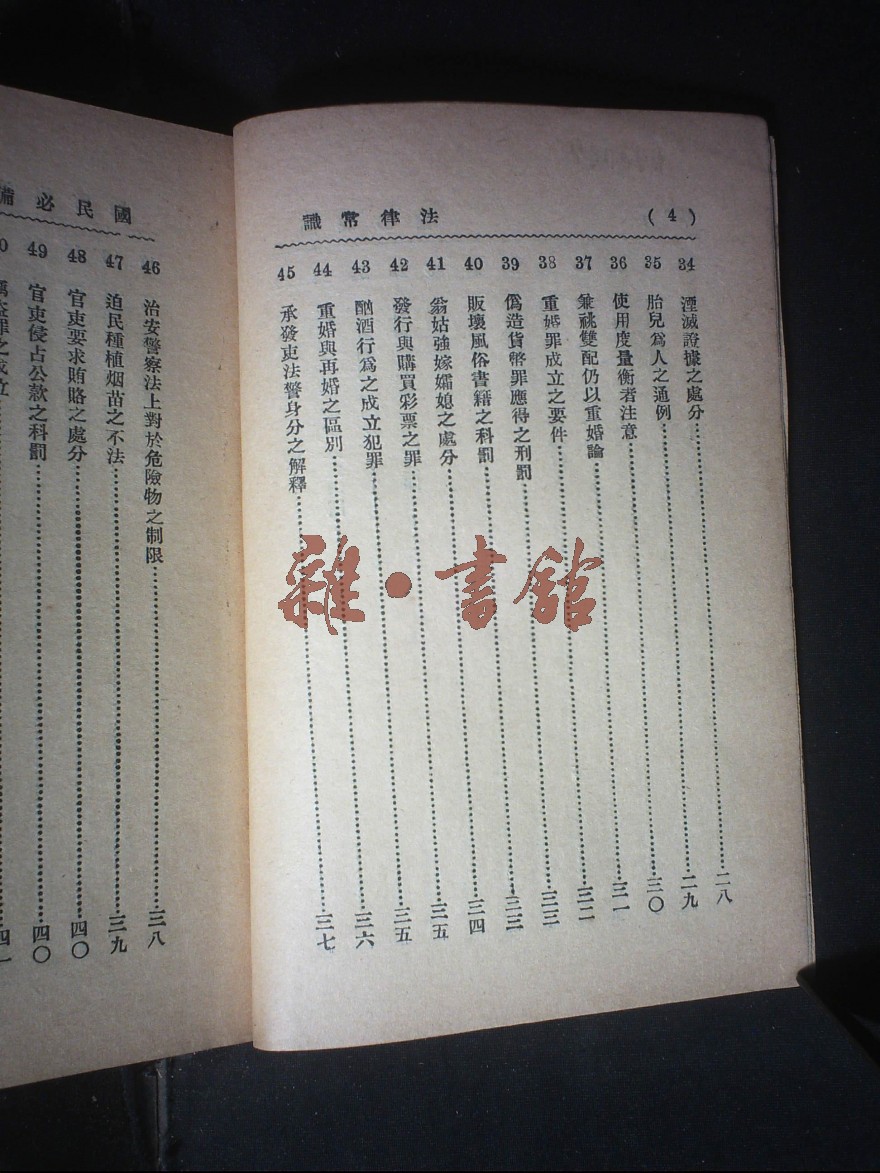 (4) 法律常識
34 湮滅證據之處分……二八
35 胎兒爲人之通例……二九
36 使用度量衡者注意……三〇
37 兼祧雙配仍以重婚論……三一
38 重婚罪成立之要件……三二
39 僞造貨幣罪應得之刑罰……三三
40 販壞風俗書籍之科罰……三三
41 翁姑強嫁孀媳之處分……三四
42 發行與購買彩票之罪……三五
43 酗酒行爲之成立犯罪……三五
44 重婚與再婚之區別……三六
45 承發吏法警身分之解釋……三七
國民必備
46 治安警察法上對於危險物之制限……三八
47 迫民種植烟苗之不法……三九
48 官吏要求賄賂之處分……四〇
49 官吏侵占公款之科罰……四〇
罪之成立……四一
雜·書館